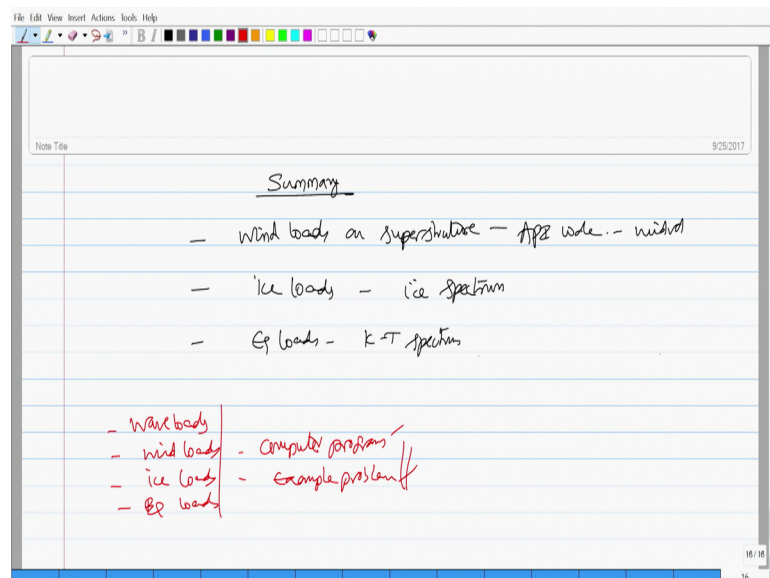 File Edit View Insert Actions Tools Help
B I
Note Title 9/25/2017
Summary
- wind loads on superstructure - API code -
- ice loads - ice spectrum
- EQ loads - K-T spectrum
- wave loads
- wind loads - computer program
- ice loads - Example problem
- EQ loads
16 / 16
16